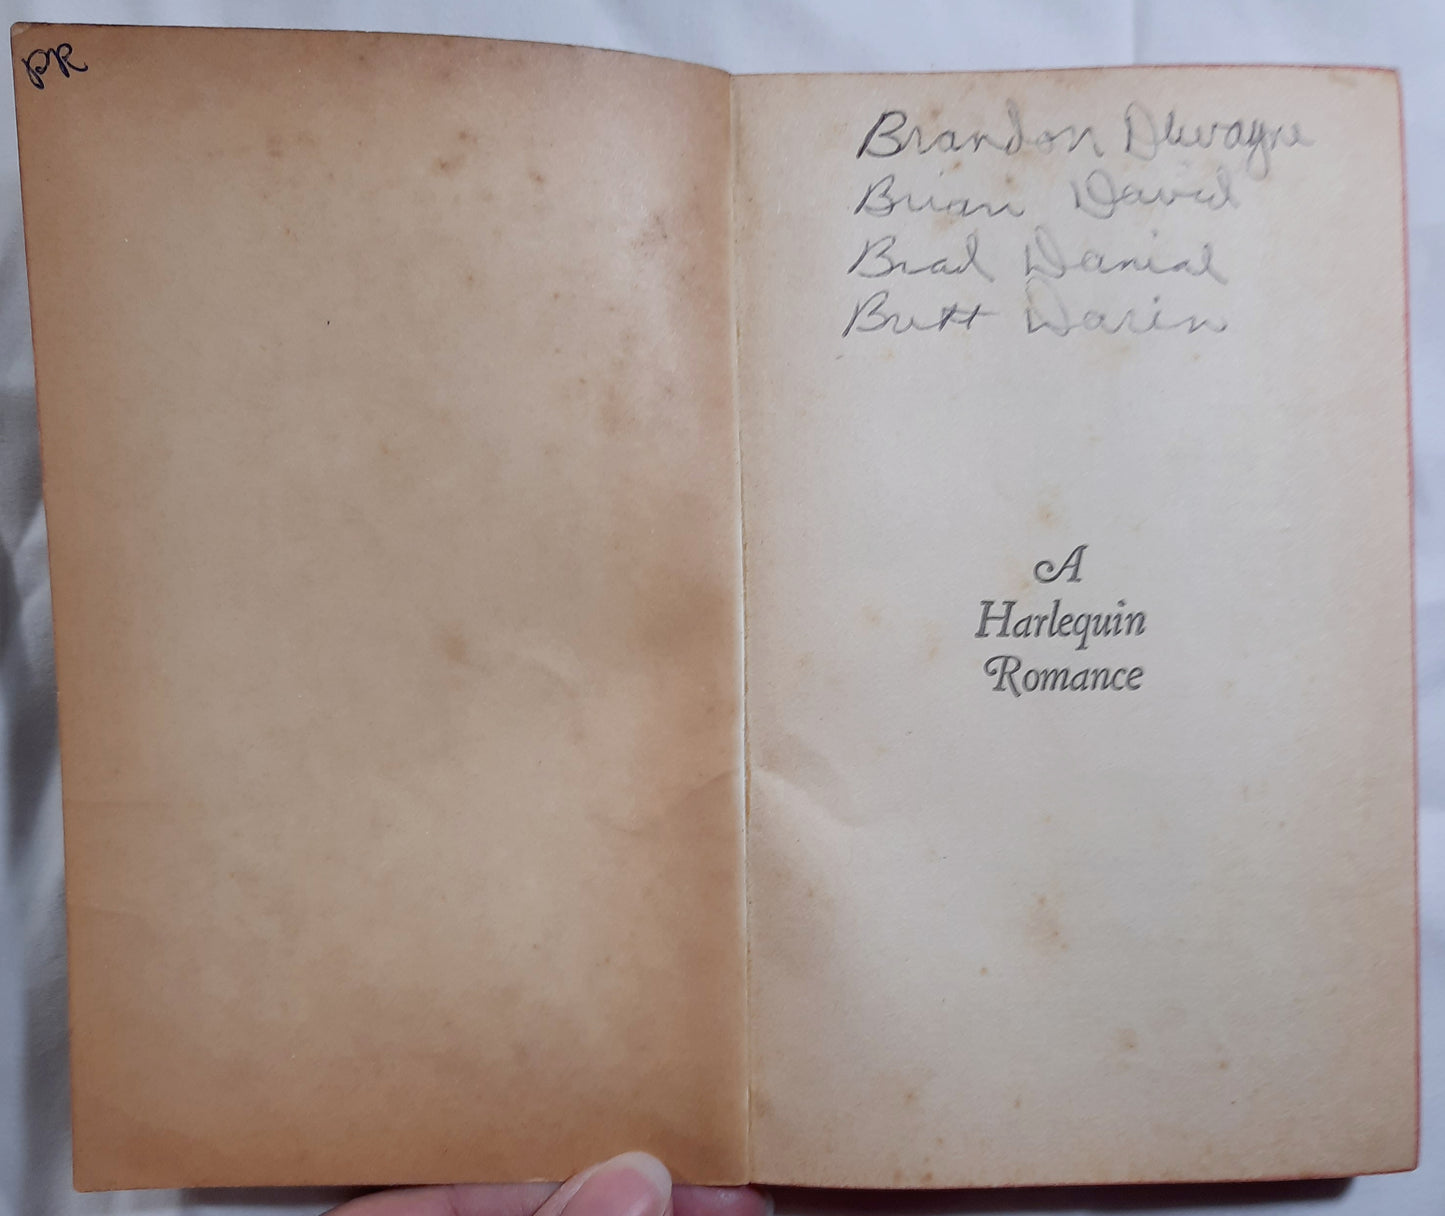 PR
Brandon Dwayne
Brian David
Brad Danial
Brett Darin
A
Harlequin
Romance